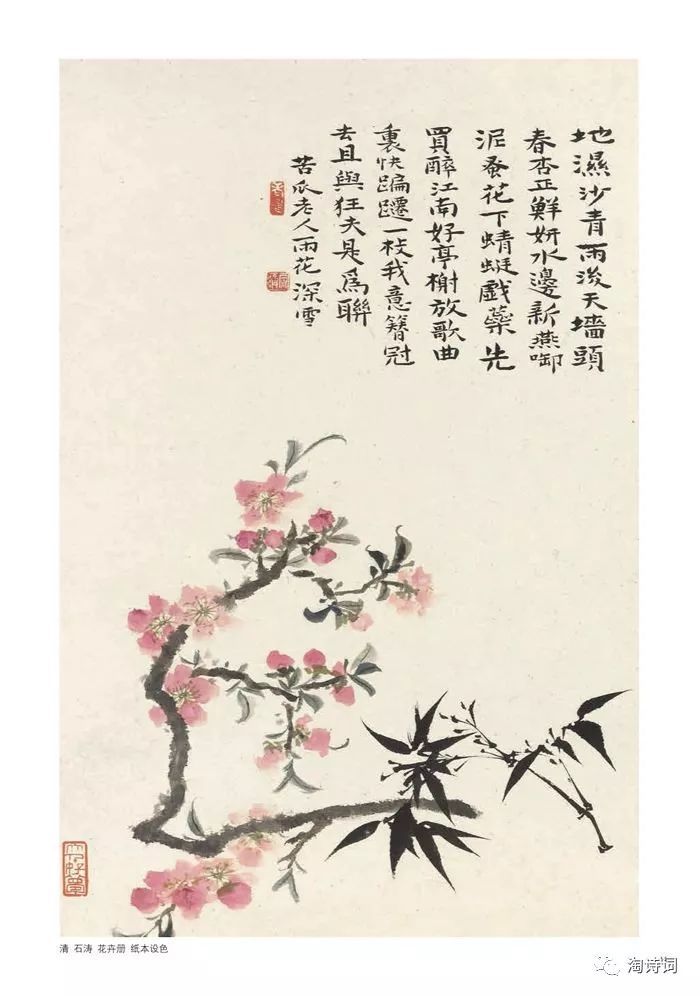 地濕沙青雨後天墻頭
春杏正鮮妍水邊新燕啣
泥蚤花下蜻蜓戲藥先
買醉江南好亭榭放歌曲
裏快蹁躚一枝我意簪冠
去且與狂夫是爲聯
苦瓜老人雨花深雪
清 石涛 花卉册 纸本设色
淘诗词